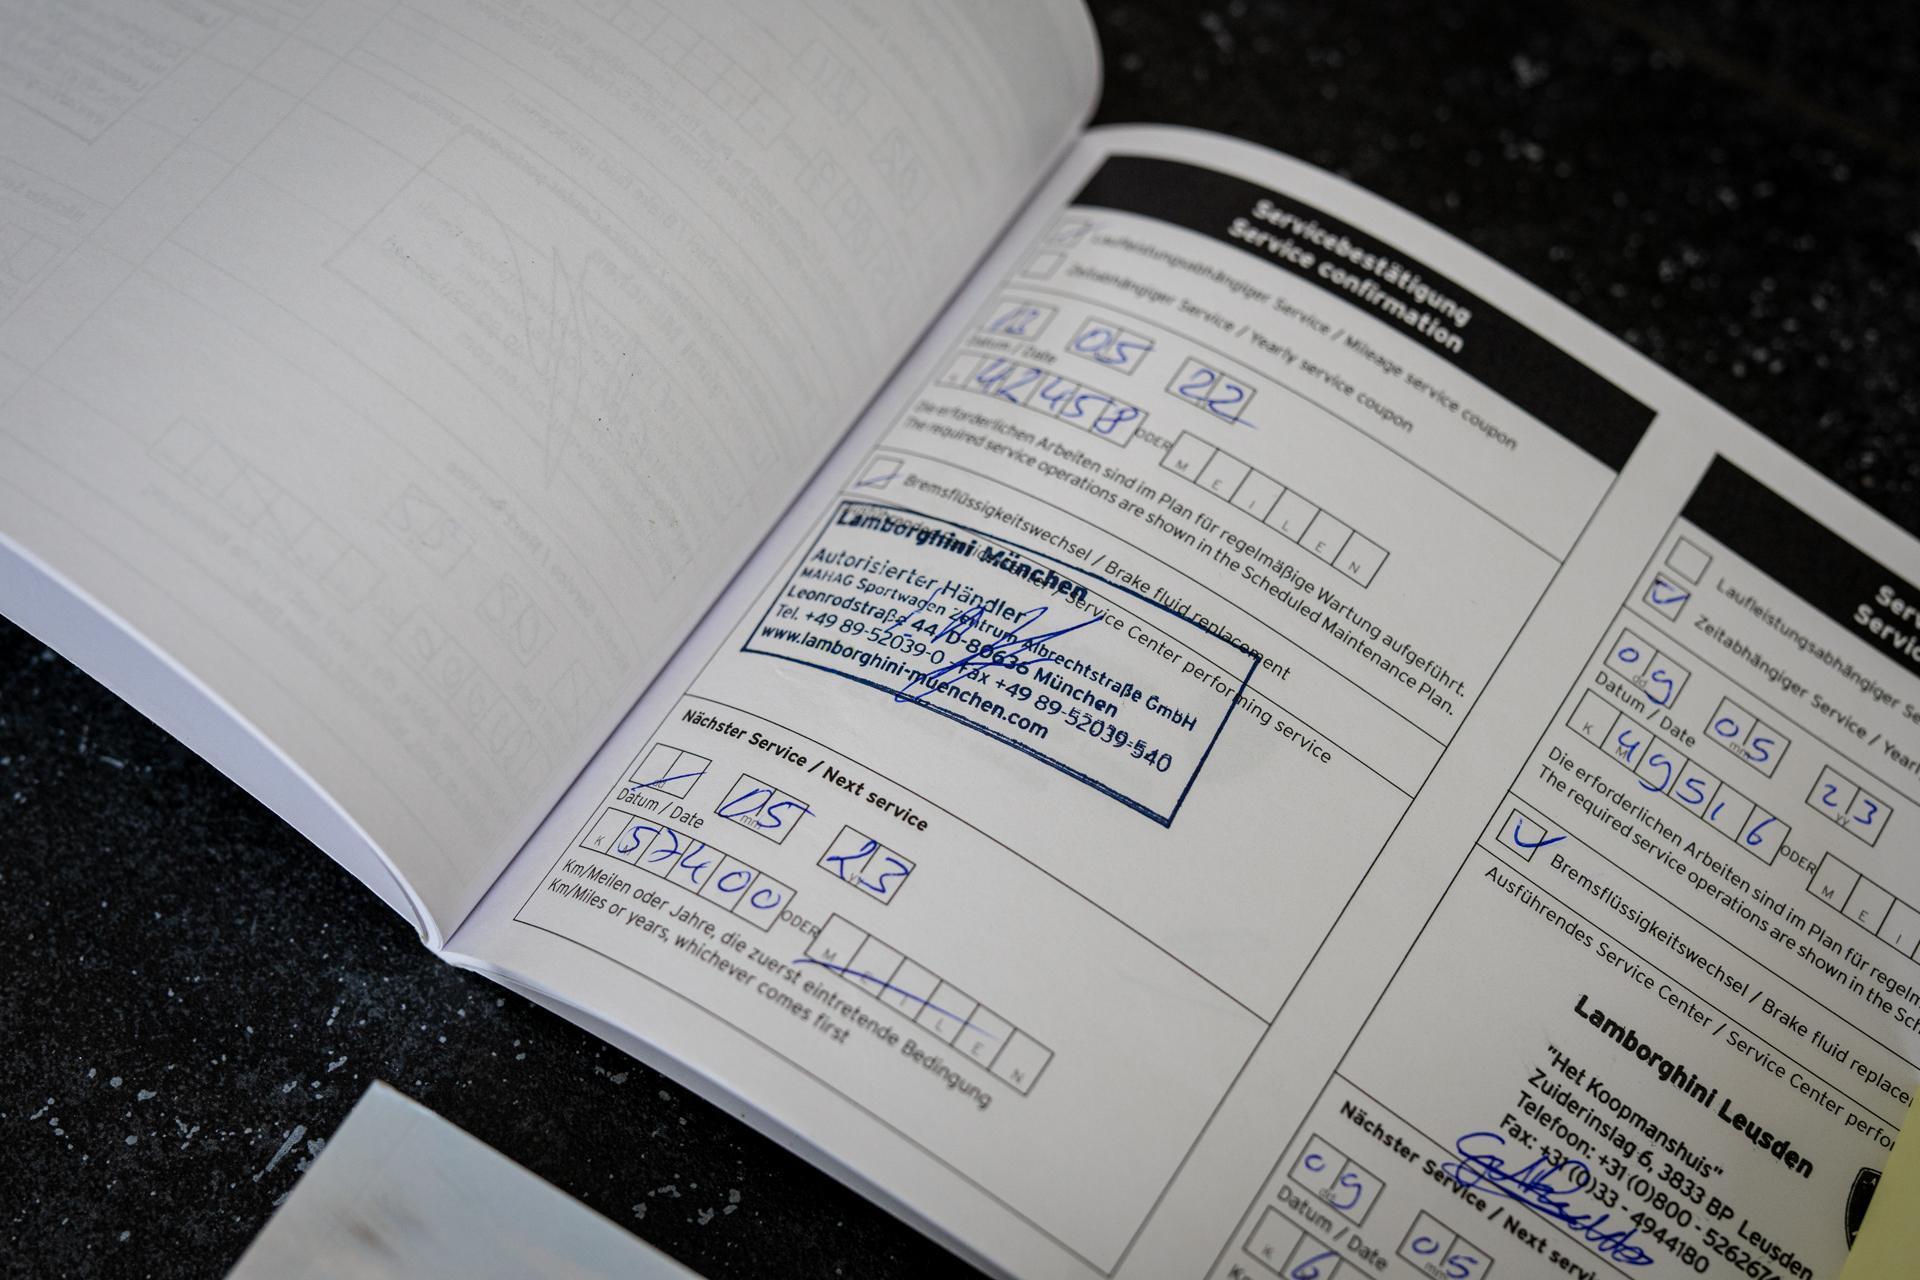 Servicebestätigung
Service confirmation
Laufleistungsabhängiger Service / Mileage service coupon
Zeitabhängiger Service / Yearly service coupon
05 22
Datum / Date
42458 ODER M E I L E N
Die erforderlichen Arbeiten sind im Plan für regelmäßige Wartung aufgeführt.
The required service operations are shown in the Scheduled Maintenance Plan.
Bremsflüssigkeitswechsel / Brake fluid replacement
Service Center performing service
Lamborghini München
Autorisierter Händler
MAHAG Sportwagen Zentrum Albrechtstraße GmbH
Leonrodstraße 44, D-80636 München
Tel. +49 89-52039-0 Fax +49 89-52039-540
www.lamborghini-muenchen.com
Nächster Service / Next service
05 23
Datum / Date
K 57400 ODER M E I L E N
Km/Meilen oder Jahre, die zuerst eintretende Bedingung
Km/Miles or years, whichever comes first
Laufleistungsabhängiger
Zeitabhängiger Service
09 05 23
Datum / Date
K 49516 ODER M E I
Die erforderlichen Arbeiten sind im Plan für
The required service operations are shown in the
Bremsflüssigkeitswechsel / Brake fluid
Ausführendes Service Center / Service Center
Lamborghini Leusden
"Het Koopmanshuis"
Zuiderinslag 6, 3833 BP Leusden
Telefoon: +31 (0)800 - 526267
Fax: +31 (0)33 - 4944180
Nächster Service / Next
09 05
Datum / Date
K 6